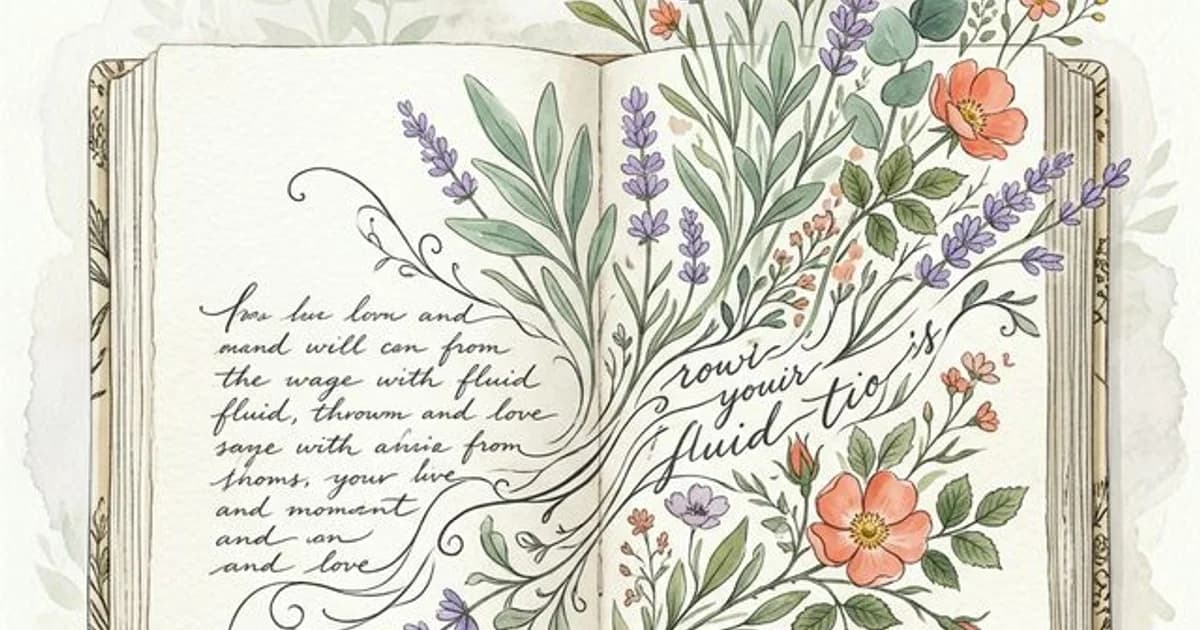 live love and
mand will can from
the wage with fluid
fluid, throwm and love
saye with from
shoms, your live
and momsant
and an
and love
rowr
youir is
fluid tio